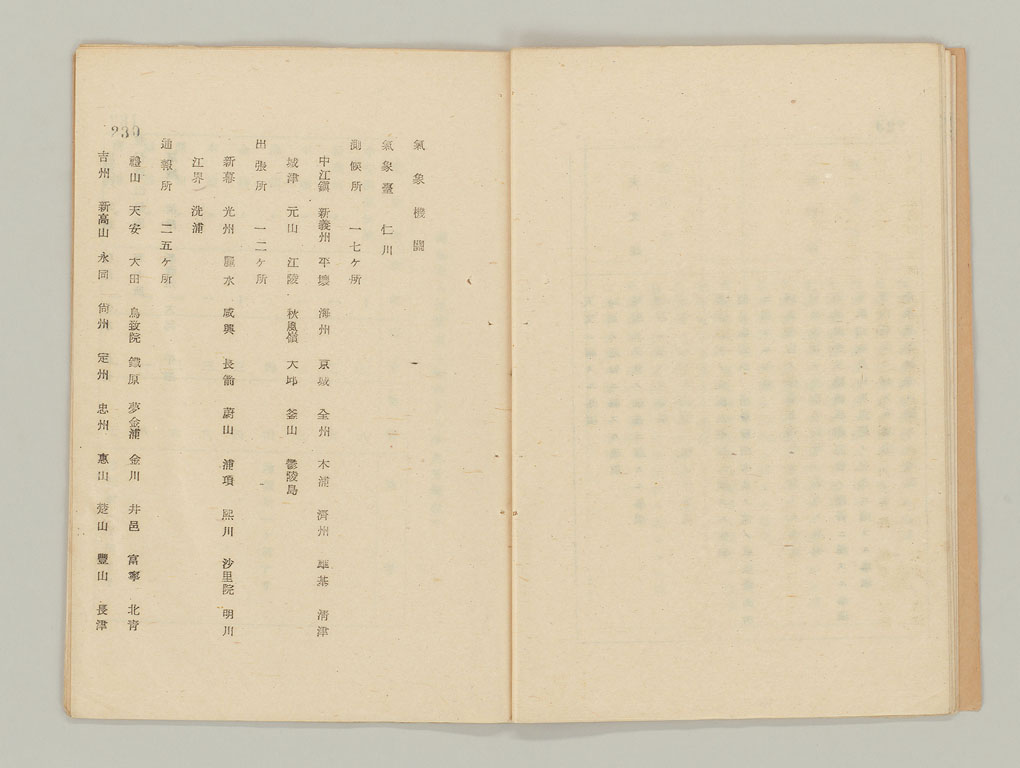 氣象機關
氣象臺 仁川
測候所 一七ケ所
中江鎭 新義州 平壤 海州 京城 全州 木浦 濟州 雄基 清津
城津 元山 江陵 秋風嶺 大邱 釜山 鬱陵島
出張所 一二ケ所
新幕 光州 麗水 咸興 長箭 蔚山 浦項 熙川 沙里院 明川
江界 洗浦
通報所 二五ケ所
禮山 天安 大田 鳥致院 鐵原 夢金浦 金川 井邑 富寧 北青
吉州 新高山 永同 尙州 定州 忠州 惠山 楚山 豐山 長津
230